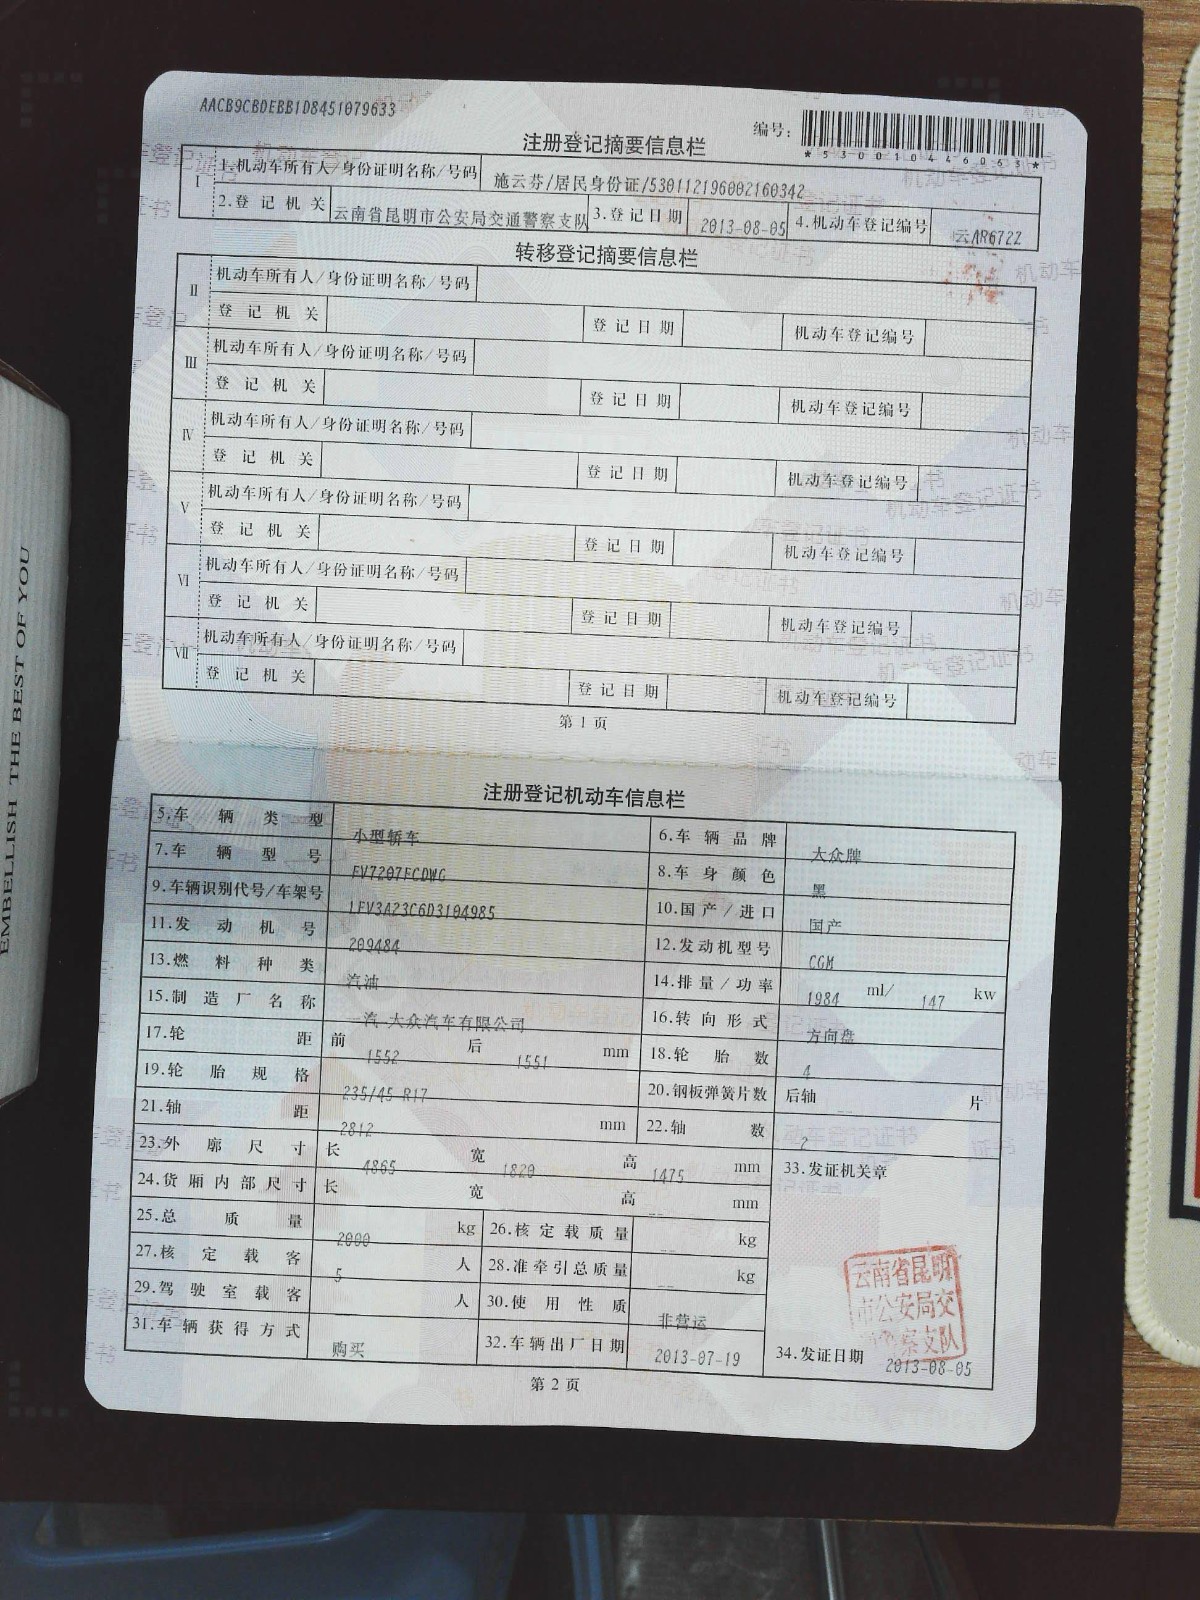 AACB9CBDEBB1D8451079633
编号：
*530010446063*
注册登记摘要信息栏
I 1.机动车所有人/身份证明名称/号码 施云芬/居民身份证/530112196002160342
2.登记机关 云南省昆明市公安局交通警察支队 3.登记日期 2013-08-05 4.机动车登记编号 云AR672Z
转移登记摘要信息栏
II 机动车所有人/身份证明名称/号码
登记机关 登记日期 机动车登记编号
III 机动车所有人/身份证明名称/号码
登记机关 登记日期 机动车登记编号
IV 机动车所有人/身份证明名称/号码
登记机关 登记日期 机动车登记编号
V 机动车所有人/身份证明名称/号码
登记机关 登记日期 机动车登记编号
VI 机动车所有人/身份证明名称/号码
登记机关 登记日期 机动车登记编号
VII 机动车所有人/身份证明名称/号码
登记机关 登记日期 机动车登记编号
第1页
注册登记机动车信息栏
5.车辆类型 小型轿车 6.车辆品牌 大众牌
7.车辆型号 FV7207FCDWG 8.车身颜色 黑
9.车辆识别代号/车架号 LFV3A23C6D3104985 10.国产/进口 国产
11.发动机号 209484 12.发动机型号 CGM
13.燃料种类 汽油 14.排量/功率 1984 ml/ 147 kw
15.制造厂名称 一汽-大众汽车有限公司 16.转向形式 方向盘
17.轮距 前 1552 后 1551 mm 18.轮胎数 4
19.轮胎规格 235/45 R17 20.钢板弹簧片数 后轴 -- 片
21.轴距 2812 mm 22.轴数 2
23.外廓尺寸 长 4865 宽 1820 高 1475 mm 33.发证机关章
24.货厢内部尺寸 长 宽 高 -- mm
25.总质量 2000 kg 26.核定载质量 -- kg
27.核定载客 5 人 28.准牵引总质量 -- kg
29.驾驶室载客 人 30.使用性质 非营运
31.车辆获得方式 购买 32.车辆出厂日期 2013-07-19 34.发证日期 2013-08-05
云南省昆明
市公安局交
警察支队
第2页
EMBELLISH THE BEST OF YOU